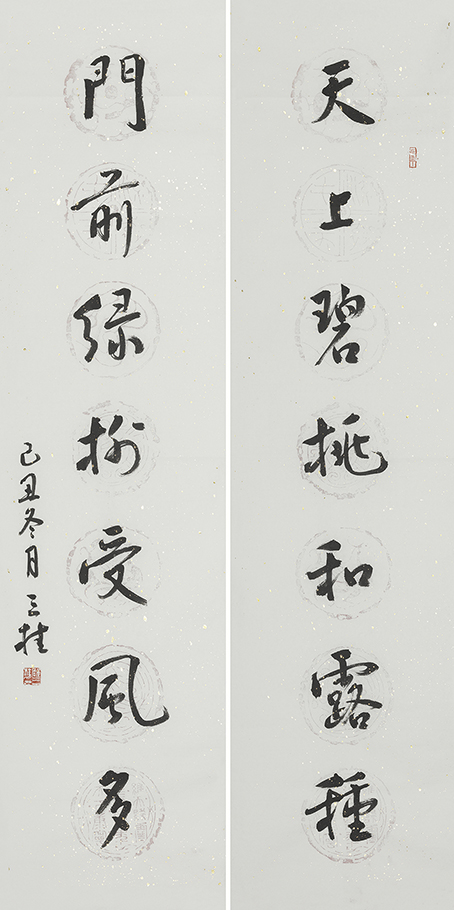 天上碧桃和露種
門前緑柳受風多
己丑冬月三桂